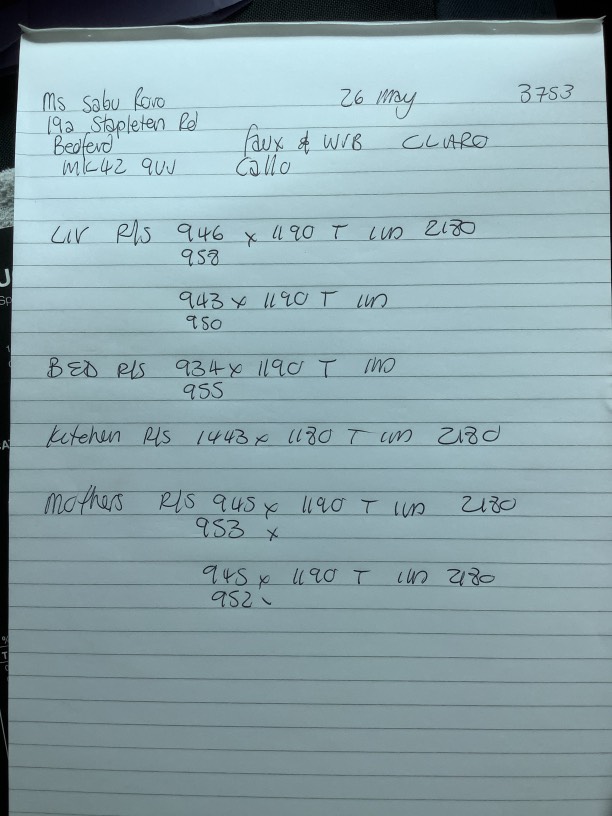 Ms Sabu Rovo 26 May 3753
19a Stapleten Rd
Bedferd Faux & WVB CLLARO
MK42 9UJ Callo
LIV R/S 946 x 1190 T 2180
958
943 x 1190 T
950
BED R/S 934 x 1190 T
955
Kitchen R/S 1443 x 1180 T 2180
Mothers R/S 945 x 1190 T 2180
953 x
945 x 1190 T 2180
952